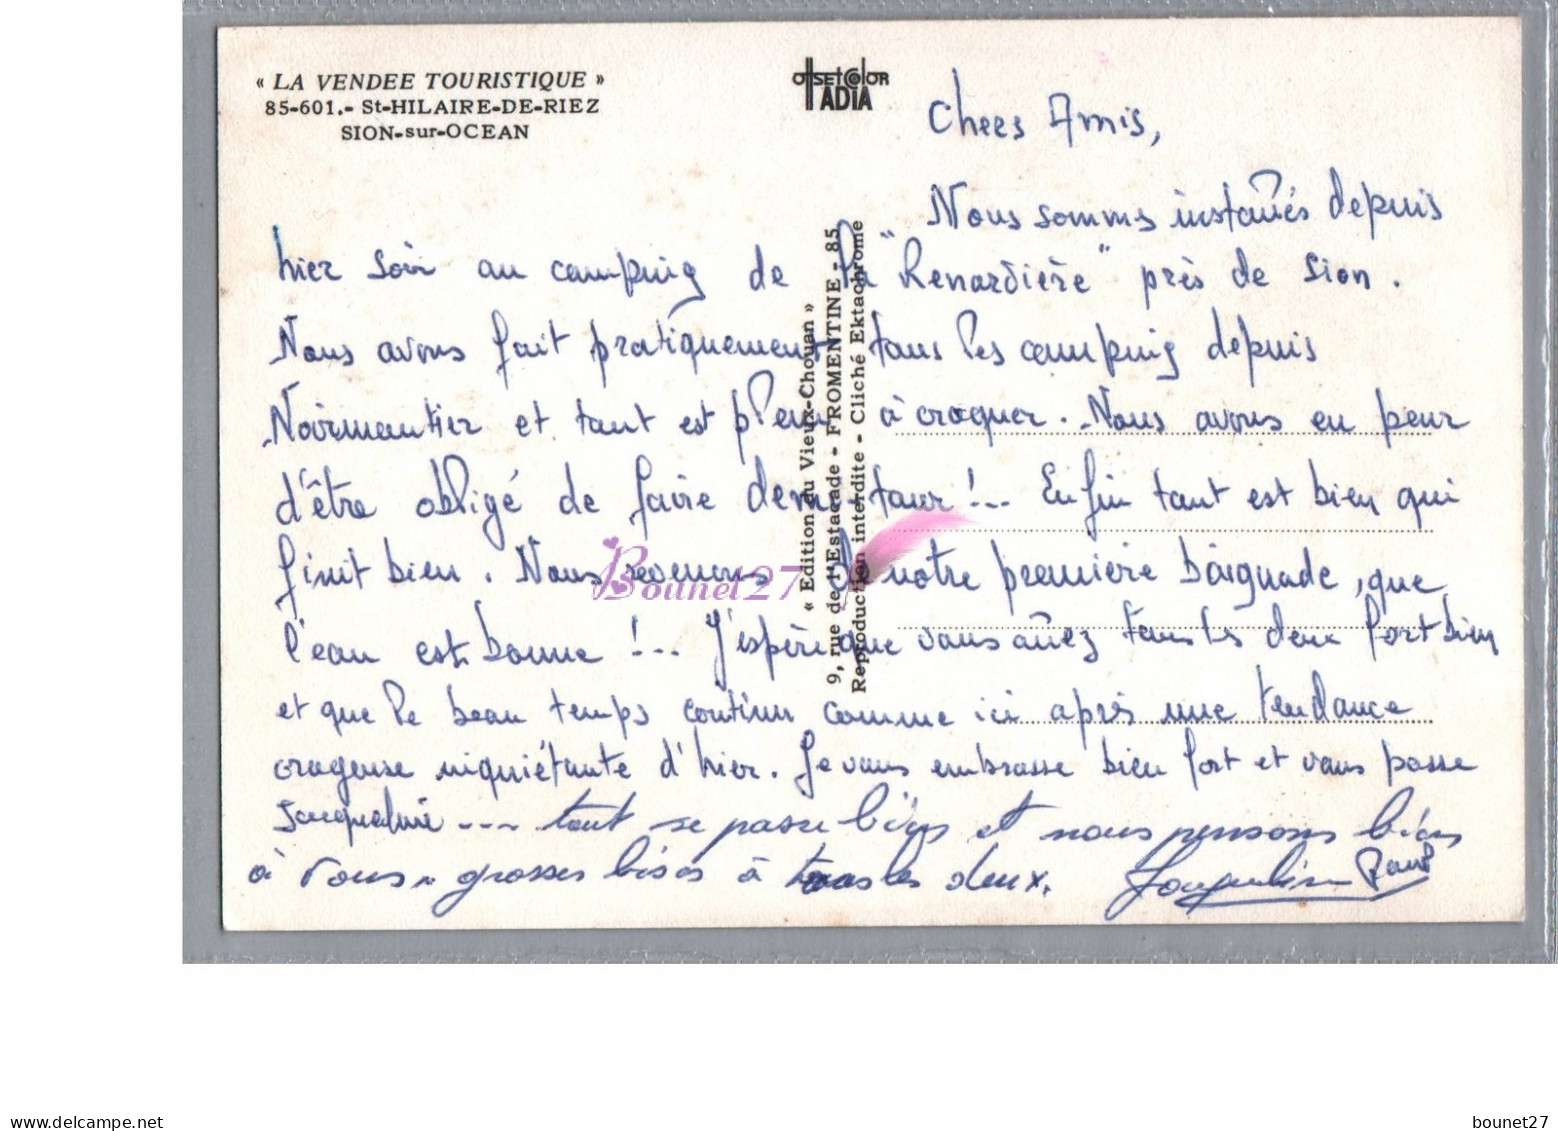 « LA VENDEE TOURISTIQUE »
85-601.- St-HILAIRE-DE-RIEZ
SION-sur-OCEAN
OFFSET COLOR
ADIA
« Edition du Vieux-Chouan »
9, rue de l'Estacade - FROMENTINE - 85
Reproduction interdite - Cliché Ektachrome
Chers Amis,
Nous sommes installés depuis
hier soir au camping de la "Renardière" près de Sion.
Nous avons fait pratiquement tous les camping depuis
Noirmoutier et tout est plein à craquer. Nous avons eu peur
d'être obligé de faire demi-tour !... Enfin tout est bien qui
finit bien. Nous revenons de notre première baignade, que
l'eau est bonne !... J'espère que vous allez tous les deux fort bien
et que le beau temps continu comme ici après une tendance
orageuse inquiétante d'hier. Je vous embrasse bien fort et vous passe
Jacqueline ---- tout se passe bien et nous pensons bien
à vous. grosses bises à tous les deux. Jacqueline Paul
Bounet27
bounet27
https://www.delcampe.net